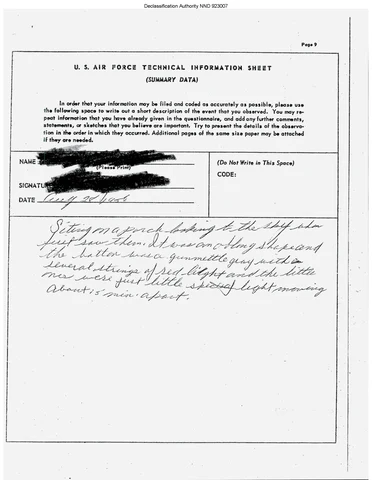 Declassification Authority NND 923007
Page 9
U. S. AIR FORCE TECHNICAL INFORMATION SHEET
(SUMMARY DATA)
In order that your information may be filed and coded as accurately as possible, please use
the following space to write out a short description of the event that you observed. You may re-
peat information that you have already given in the questionnaire, and add any further comments,
statements, or sketches that you believe are important. Try to present the details of the observa-
tion in the order in which they occurred. Additional pages of the same size paper may be attached
if they are needed.
NAME
(Please Print)
SIGNATU
DATE Aug 20
(Do Not Write in This Space)
CODE:
Siting on a porch looking to the sky when
first saw them. It was an oblong shape and
the bottom was a gunmettle gray with
several strings of red light and the little
ones were just little light moving
about 15 min. apart.